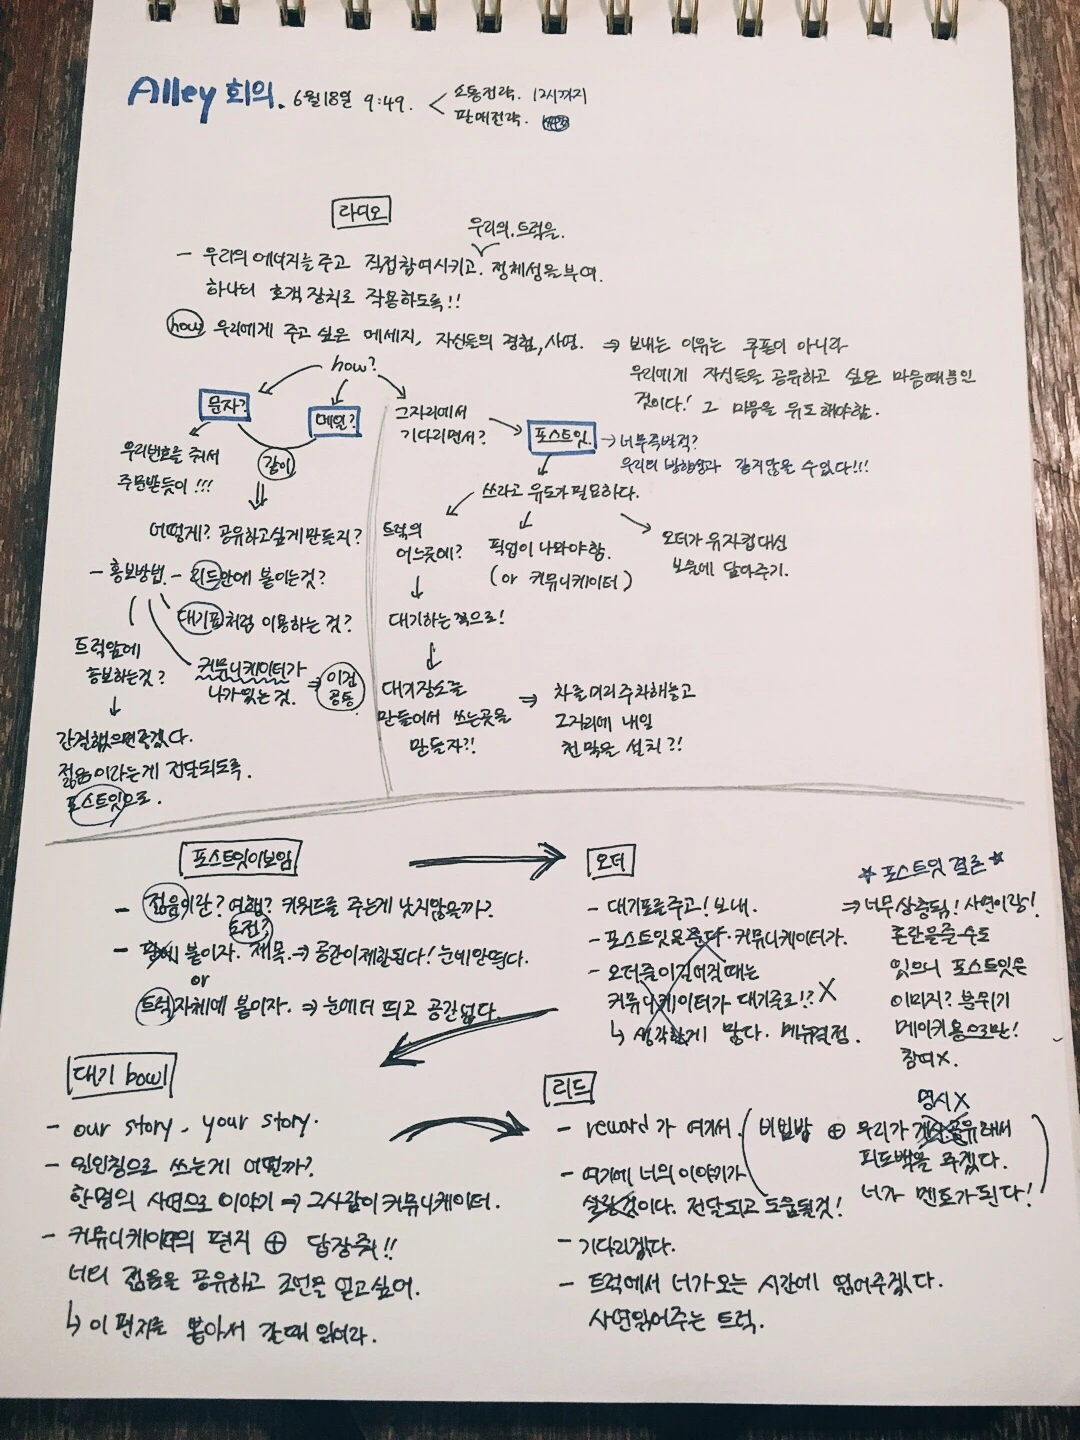 Alley 회의. 6월18일 9:49.
소통전략. 12시까지
판매전략.
라디오
우리의 트럭을.
- 우리의 에너지를 주고 직접참여시키고. 정체성을 부여.
하나의 호객 장치로 작용하도록!!
how 우리에게 주고 싶은 메세지, 자신들의 경험, 사연. ⇒ 보내는 이유는 쿠폰이 아니라
우리에게 자신들을 공유하고 싶은 마음때문인
것이다! 그 마음을 유도해야함.
how?
문자?
메일?
그자리에서
기다리면서?
포스트잇.
→ 너무즉발적?
우리의 방향성과 같지않을 수 있다!!!
우리번호를 줘서
주문받듯이!!!
같이
쓰라고 유도가 필요하다.
어떻게? 공유하고싶게만들지?
트럭의
어느곳에?
픽업이 나와야함.
(or 커뮤니케이터)
오더가 유자컵대신
보울에 담아주기.
- 홍보방법. - 리드안에 붙이는것?
대기표처럼 이용하는 것?
대기하는쪽으로!
트럭앞에
홍보하는것?
커뮤니케이터가
나가있는 것. ⇒ 이건
공통
대기장소를
만들어서 쓰는곳을
만들자?!
⇒ 차를미리주차해놓고
그자리에 내일
천막을 설치?!
간결했으면좋겠다.
젊음이라는게 전달되도록.
포스트잇으로.
포스트잇이보임
오더
☆ 포스트잇 결론 ☆
- 젊음이란? 여행? 키워드를 주는게 낫지않을까?
도전?
- 판에 붙이자. 제목. → 공간이제한된다! 눈에안띈다.
or
트럭자체에 붙이자. ⇒ 눈에더 띄고 공간넓다.
- 대기표를주고! 보내.
- 포스트잇은준다. 커뮤니케이터가.
- 오더줄이길어질때는
커뮤니케이터가 대기줄로!? X
↳ 생각할게 많다. 메뉴결정.
⇒ 너무상충됨! 사연이랑!
혼란을줄수도
있으니 포스트잇은
이미지? 분위기
메이커용으로만!
참여X.
대기 bowl
- our story, your story.
- 일인칭으로 쓰는게 어떨까?
한명의 사연으로 이야기 → 그사람이커뮤니케이터.
- 커뮤니케이터의 편지 ⊕ 답장줘!!
너의 젊음을 공유하고 조언을 얻고싶어.
↳ 이 편지를 뽑아서 갈때 읽어라.
리드
- reward가 여기서. (비빔밥 ⊕ 우리가 공유해서
명시X
피드백을 주겠다.
너가 멘토가된다!)
- 여기에 너의이야기가
실릴것이다. 전달되고 도움될것!
- 기다리겠다.
- 트럭에서 너가오는 시간에 읽어주겠다.
사연읽어주는 트럭.